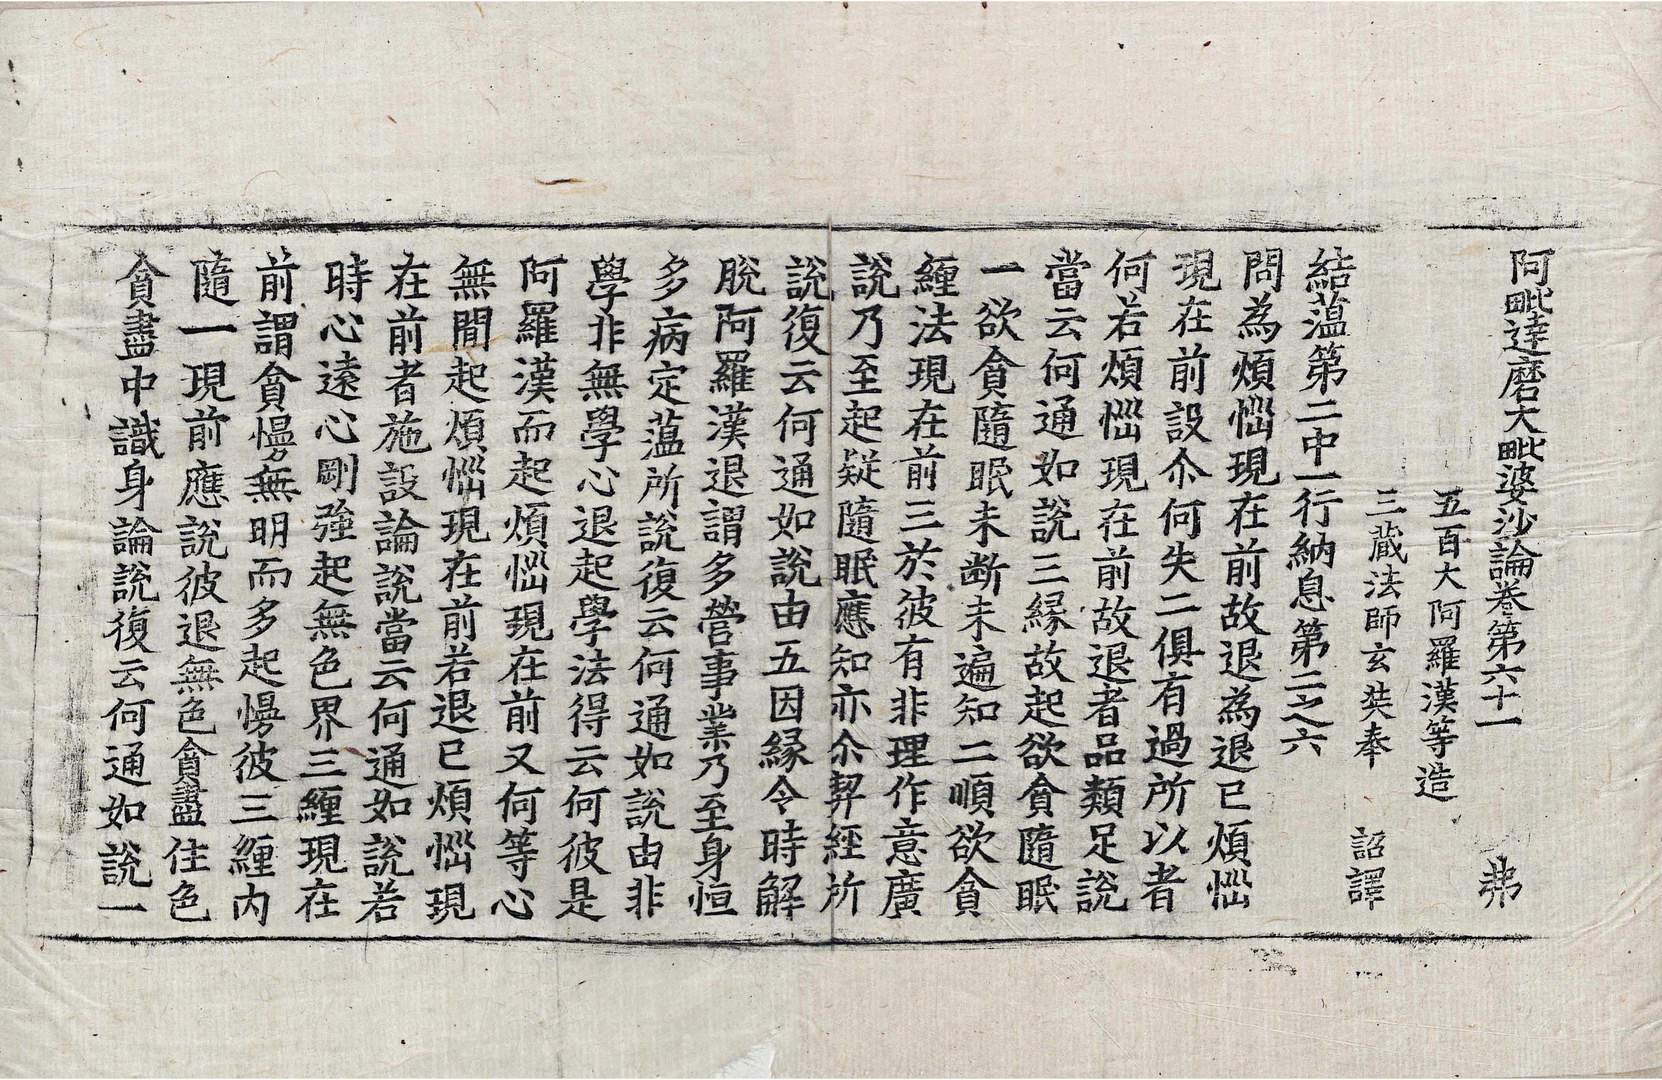 阿毗達磨大毗婆沙論卷第六十一　弗
五百大阿羅漢等造
三藏法師玄奘奉　詔譯
結蕰第二中一行納息第二之六
問為煩惱現在前故退為退已煩惱
現在前設尒何失二俱有過所以者
何若煩惱現在前故退者品類足說
當云何通如說三緣故起欲貪隨眠
一欲貪隨眠未断未遍知二順欲貪
纏法現在前三於彼有非理作意廣
說乃至起疑隨眠應知亦尒契經所
說復云何通如說由五因緣令時解
脫阿羅漢退謂多營事業乃至身恒
多病定蕰所說復云何通如說由非
學非無學心退起學法得云何彼是
阿羅漢而起煩惱現在前又何等心
無間起煩惱現在前若退已煩惱現
在前者施設論說當云何通如說若
時心遠心剛強起無色界三纏現在
前謂貪慢無明而多起慢彼三纏內
隨一現前應說彼退無色貪盡住色
貪盡中識身論說復云何通如說一